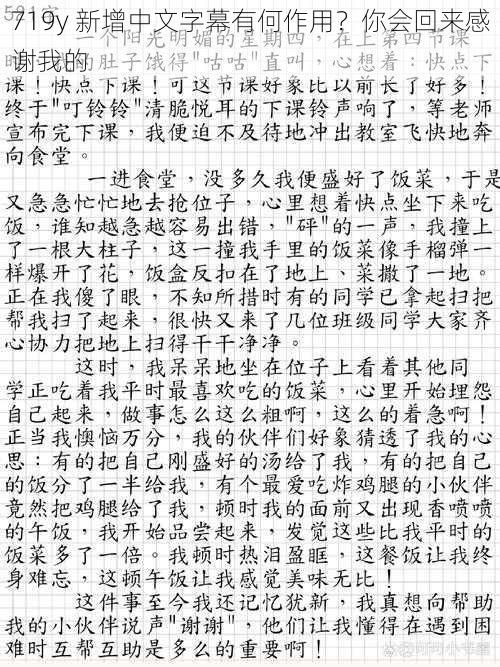 719y 新增中文字幕有何作用？你会回来感
谢我的
591字
一个阳光明媚的星期四，在上第四节课
时，我的肚子饿得"咕咕"直叫，心想着：快点下
课！快点下课！可这节课好象比以前长了好多！
终于"叮铃铃"清脆悦耳的下课铃声响了，等老师
宣布完下课，我便迫不及待地冲出教室飞快地奔
向食堂。
一进食堂，没多久我便盛好了饭菜，于是
又急急忙忙地去抢位子，心里想着快点坐下来吃
饭，谁知越急越容易出错，"砰"的一声，我撞上
了一根大柱子，这一撞我手里的饭菜像手榴弹一
样爆开了花，饭盒反扣在了地上、菜撒了一地。
正在我傻了眼，不知所措时有的同学已拿起扫把
帮我扫了起来，很快又来了几位班级同学大家齐
心协力把地上扫得干干净净。
这时，我呆呆地坐在位子上看着其他同
学正吃着我平时最喜欢吃的饭菜，心里开始埋怨
自己起来，做事怎么这么粗啊，这么的着急啊！
正当我懊恼万分，我的伙伴们好象猜透了我的心
思：有的把自己刚盛好的汤给了我，有的把自己
的饭分了一半给我，有个最爱吃炸鸡腿的小伙伴
竟然把鸡腿给了我，顿时我的面前又出现香喷喷
的午饭，我开始品尝起来，发觉这些比我平时的
饭菜多了一倍。我顿时热泪盈眶，这餐饭让我终
身难忘，这顿午饭让我感觉美味无比！
这件事至今我还记忆犹新，我真想向帮助
我的小伙伴说声"谢谢"，他们让我懂得在遇到困
难时互帮互助是多么的重要啊！